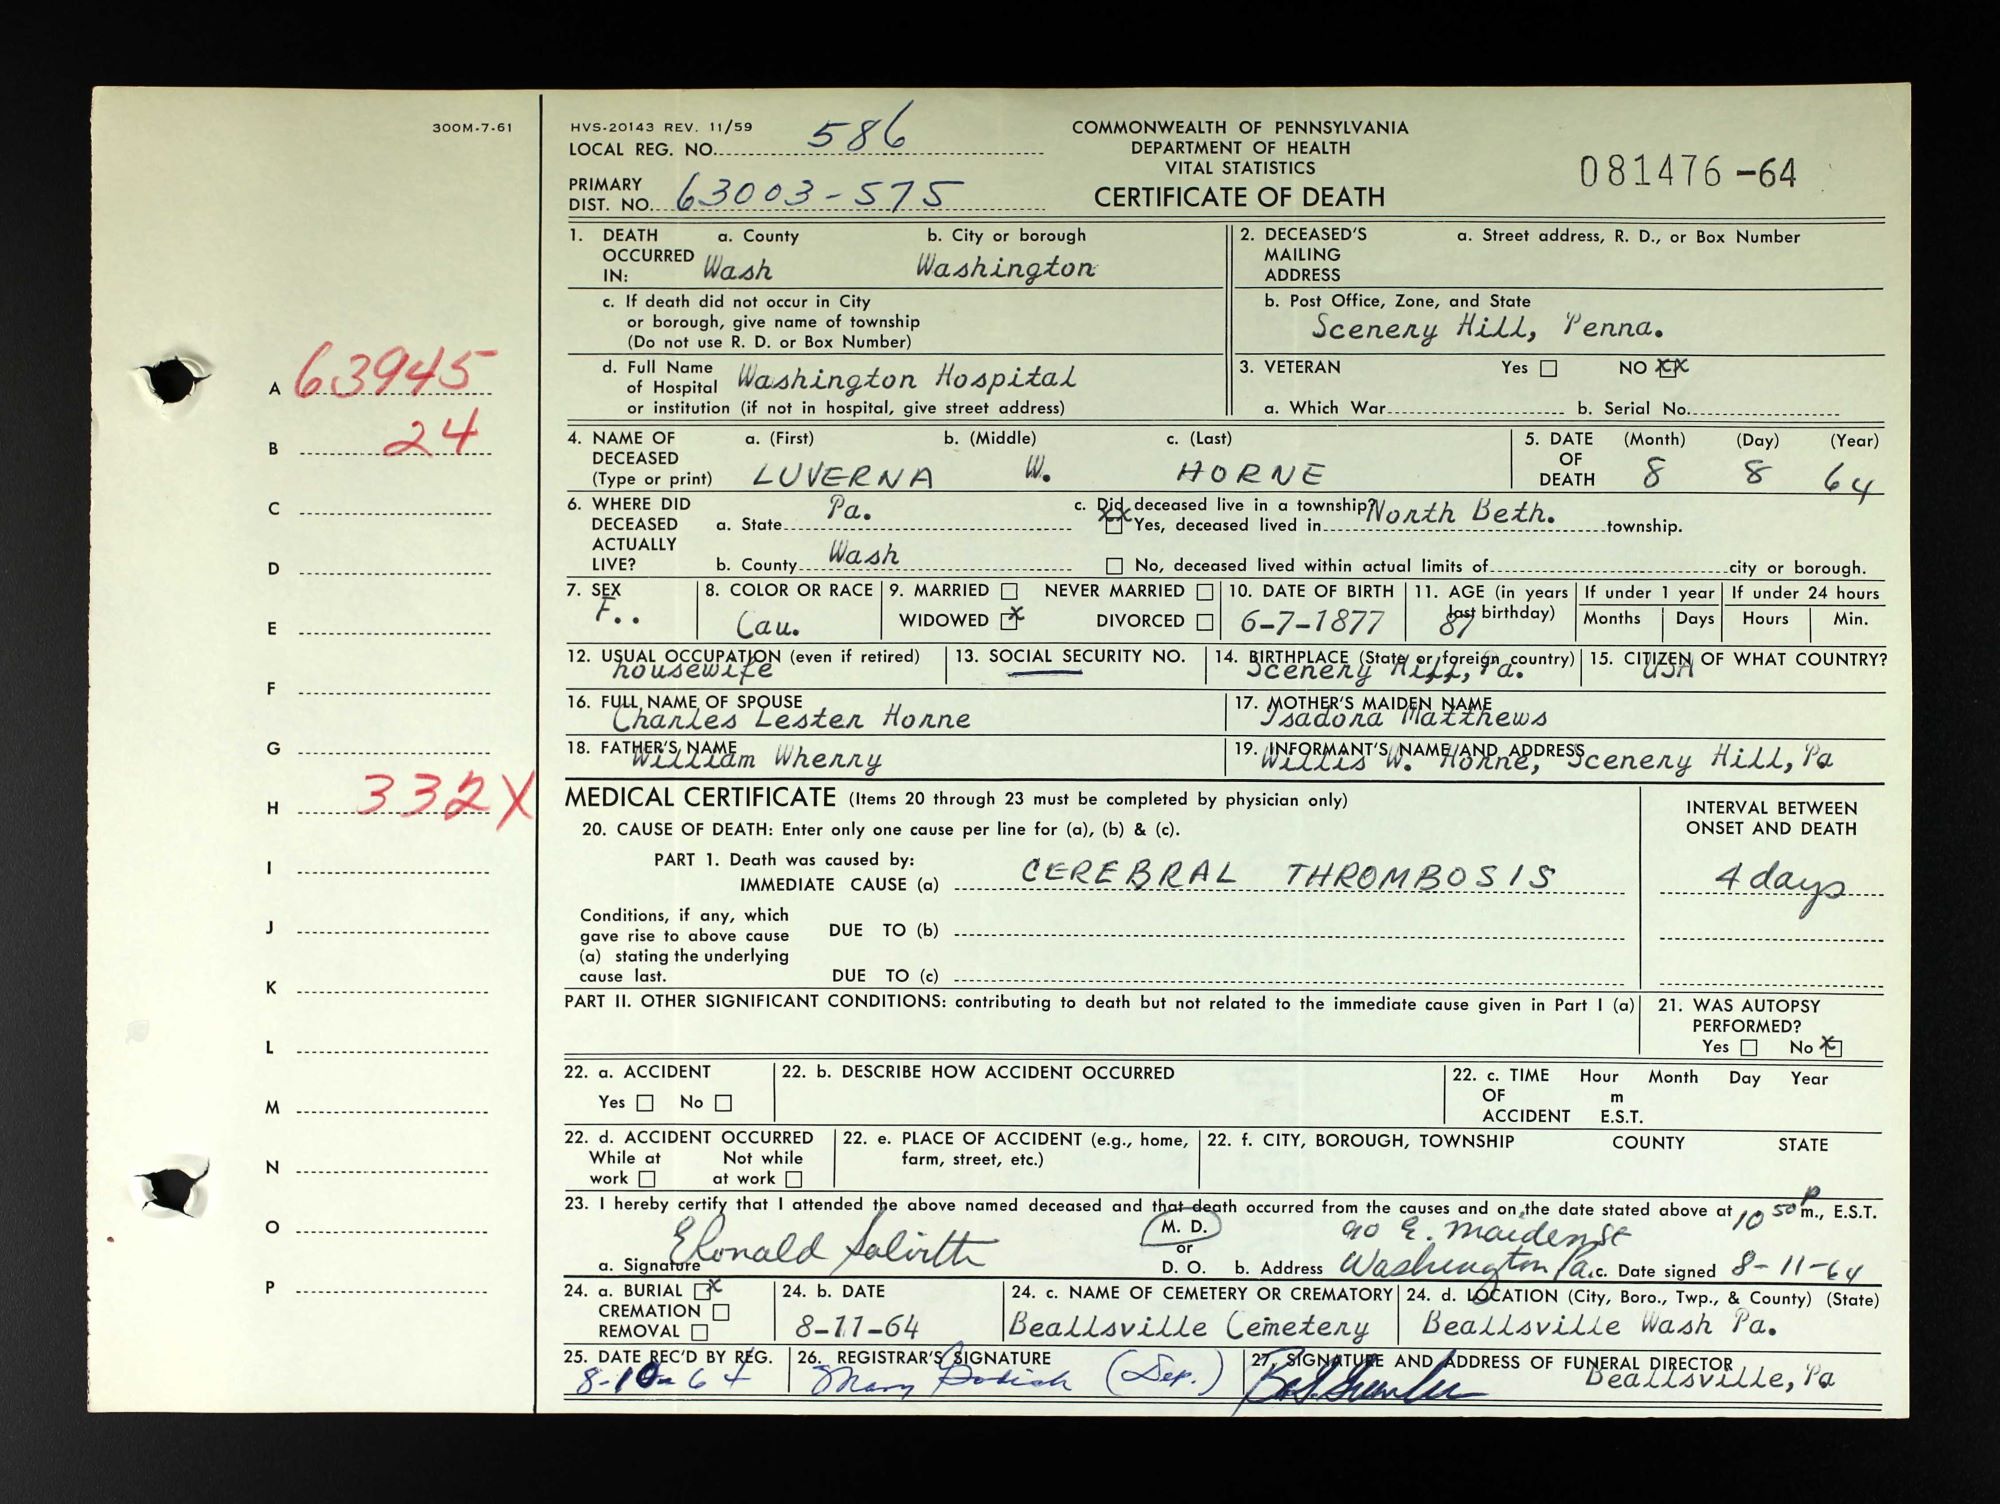 300M-7-61
HVS-20143 REV. 11/59
LOCAL REG. NO. 586
PRIMARY DIST. NO. 63003-575
COMMONWEALTH OF PENNSYLVANIA
DEPARTMENT OF HEALTH
VITAL STATISTICS
CERTIFICATE OF DEATH
081476-64
A 63945
B 24
C
D
E
F
G
H 332X
I
J
K
L
M
N
O
P
1. DEATH OCCURRED IN: a. County Wash b. City or borough Washington
c. If death did not occur in City
or borough, give name of township
(Do not use R. D. or Box Number)
d. Full Name of Hospital Washington Hospital
or institution (if not in hospital, give street address)
2. DECEASED'S MAILING ADDRESS a. Street address, R. D., or Box Number
b. Post Office, Zone, and State
Scenery Hill, Penna.
3. VETERAN Yes NO XX
a. Which War b. Serial No.
4. NAME OF DECEASED (Type or print) a. (First) LUVERNA b. (Middle) W. c. (Last) HORNE
5. DATE OF DEATH (Month) 8 (Day) 8 (Year) 64
6. WHERE DID DECEASED ACTUALLY LIVE? a. State Pa.
b. County Wash
c. Did deceased live in a township?
XX Yes, deceased lived in North Beth. township.
No, deceased lived within actual limits of city or borough.
7. SEX F..
8. COLOR OR RACE Cau.
9. MARRIED NEVER MARRIED
WIDOWED X DIVORCED
10. DATE OF BIRTH 6-7-1877
11. AGE (in years last birthday) 87
If under 1 year Months Days
If under 24 hours Hours Min.
12. USUAL OCCUPATION (even if retired) housewife
13. SOCIAL SECURITY NO.
14. BIRTHPLACE (State or foreign country) Scenery Hill, Pa.
15. CITIZEN OF WHAT COUNTRY? USA
16. FULL NAME OF SPOUSE Charles Lester Horne
17. MOTHER'S MAIDEN NAME Isadora Matthews
18. FATHER'S NAME William Wherry
19. INFORMANT'S NAME AND ADDRESS Willis W. Horne, Scenery Hill, Pa
MEDICAL CERTIFICATE (Items 20 through 23 must be completed by physician only)
INTERVAL BETWEEN ONSET AND DEATH
20. CAUSE OF DEATH: Enter only one cause per line for (a), (b) & (c).
PART 1. Death was caused by:
IMMEDIATE CAUSE (a) CEREBRAL THROMBOSIS 4 days
Conditions, if any, which
gave rise to above cause
(a) stating the underlying
cause last.
DUE TO (b)
DUE TO (c)
PART II. OTHER SIGNIFICANT CONDITIONS: contributing to death but not related to the immediate cause given in Part I (a)
21. WAS AUTOPSY PERFORMED?
Yes No X
22. a. ACCIDENT
Yes No
22. b. DESCRIBE HOW ACCIDENT OCCURRED
22. c. TIME OF ACCIDENT Hour Month Day Year
m
E.S.T.
22. d. ACCIDENT OCCURRED
While at work Not while at work
22. e. PLACE OF ACCIDENT (e.g., home, farm, street, etc.)
22. f. CITY, BOROUGH, TOWNSHIP COUNTY STATE
23. I hereby certify that I attended the above named deceased and that death occurred from the causes and on the date stated above at 10 50 P m., E.S.T.
a. Signature
M. D. or D. O.
b. Address 90 E. Maiden St
Washington Pa.
c. Date signed 8-11-64
24. a. BURIAL X
CREMATION
REMOVAL
24. b. DATE 8-11-64
24. c. NAME OF CEMETERY OR CREMATORY Beallsville Cemetery
24. d. LOCATION (City, Boro., Twp., & County) (State) Beallsville Wash Pa.
25. DATE REC'D BY REG. 8-10-64
26. REGISTRAR'S SIGNATURE Mary (Dep.)
27. SIGNATURE AND ADDRESS OF FUNERAL DIRECTOR Beallsville, Pa